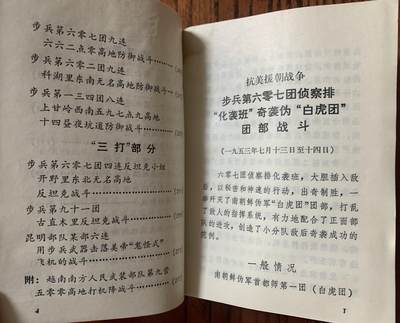 步兵第六〇七团九连
六六二点零高地防御战斗
步兵第六〇二团九连
科湖里东南无名高地防御战斗
步兵第一三四团八连
上甘岭西南五九七点九高地
十四昼夜坑道防御战斗
“三打”部分
步兵第六〇七团四连反坦克小组
开野里东北无名高地
反坦克战斗
步兵第九十一团
古直木里反坦克战斗
昆明部队某部六连
用步兵武器击落美帝“鬼怪式”
飞机的战斗
附：越南南方人民武装部队第九营
五零零高地打机降战斗
4
抗美援朝战争
步兵第六零七团侦察排
“化袭班”奇袭伪“白虎团”
团部战斗
（一九五三年七月十三日至十四日）
六零七团侦察排化袭班，大胆插入敌
后，以秘密和神速的行动，出奇制胜，一
举歼灭了南朝鲜伪军“白虎团”团部，打乱
了敌人的指挥系统，有力地配合了正面部
队的进攻，创造了小分队敌后奇袭成功的
范例。
一般情况
南朝鲜伪军首都师第一团（白虎团）
1